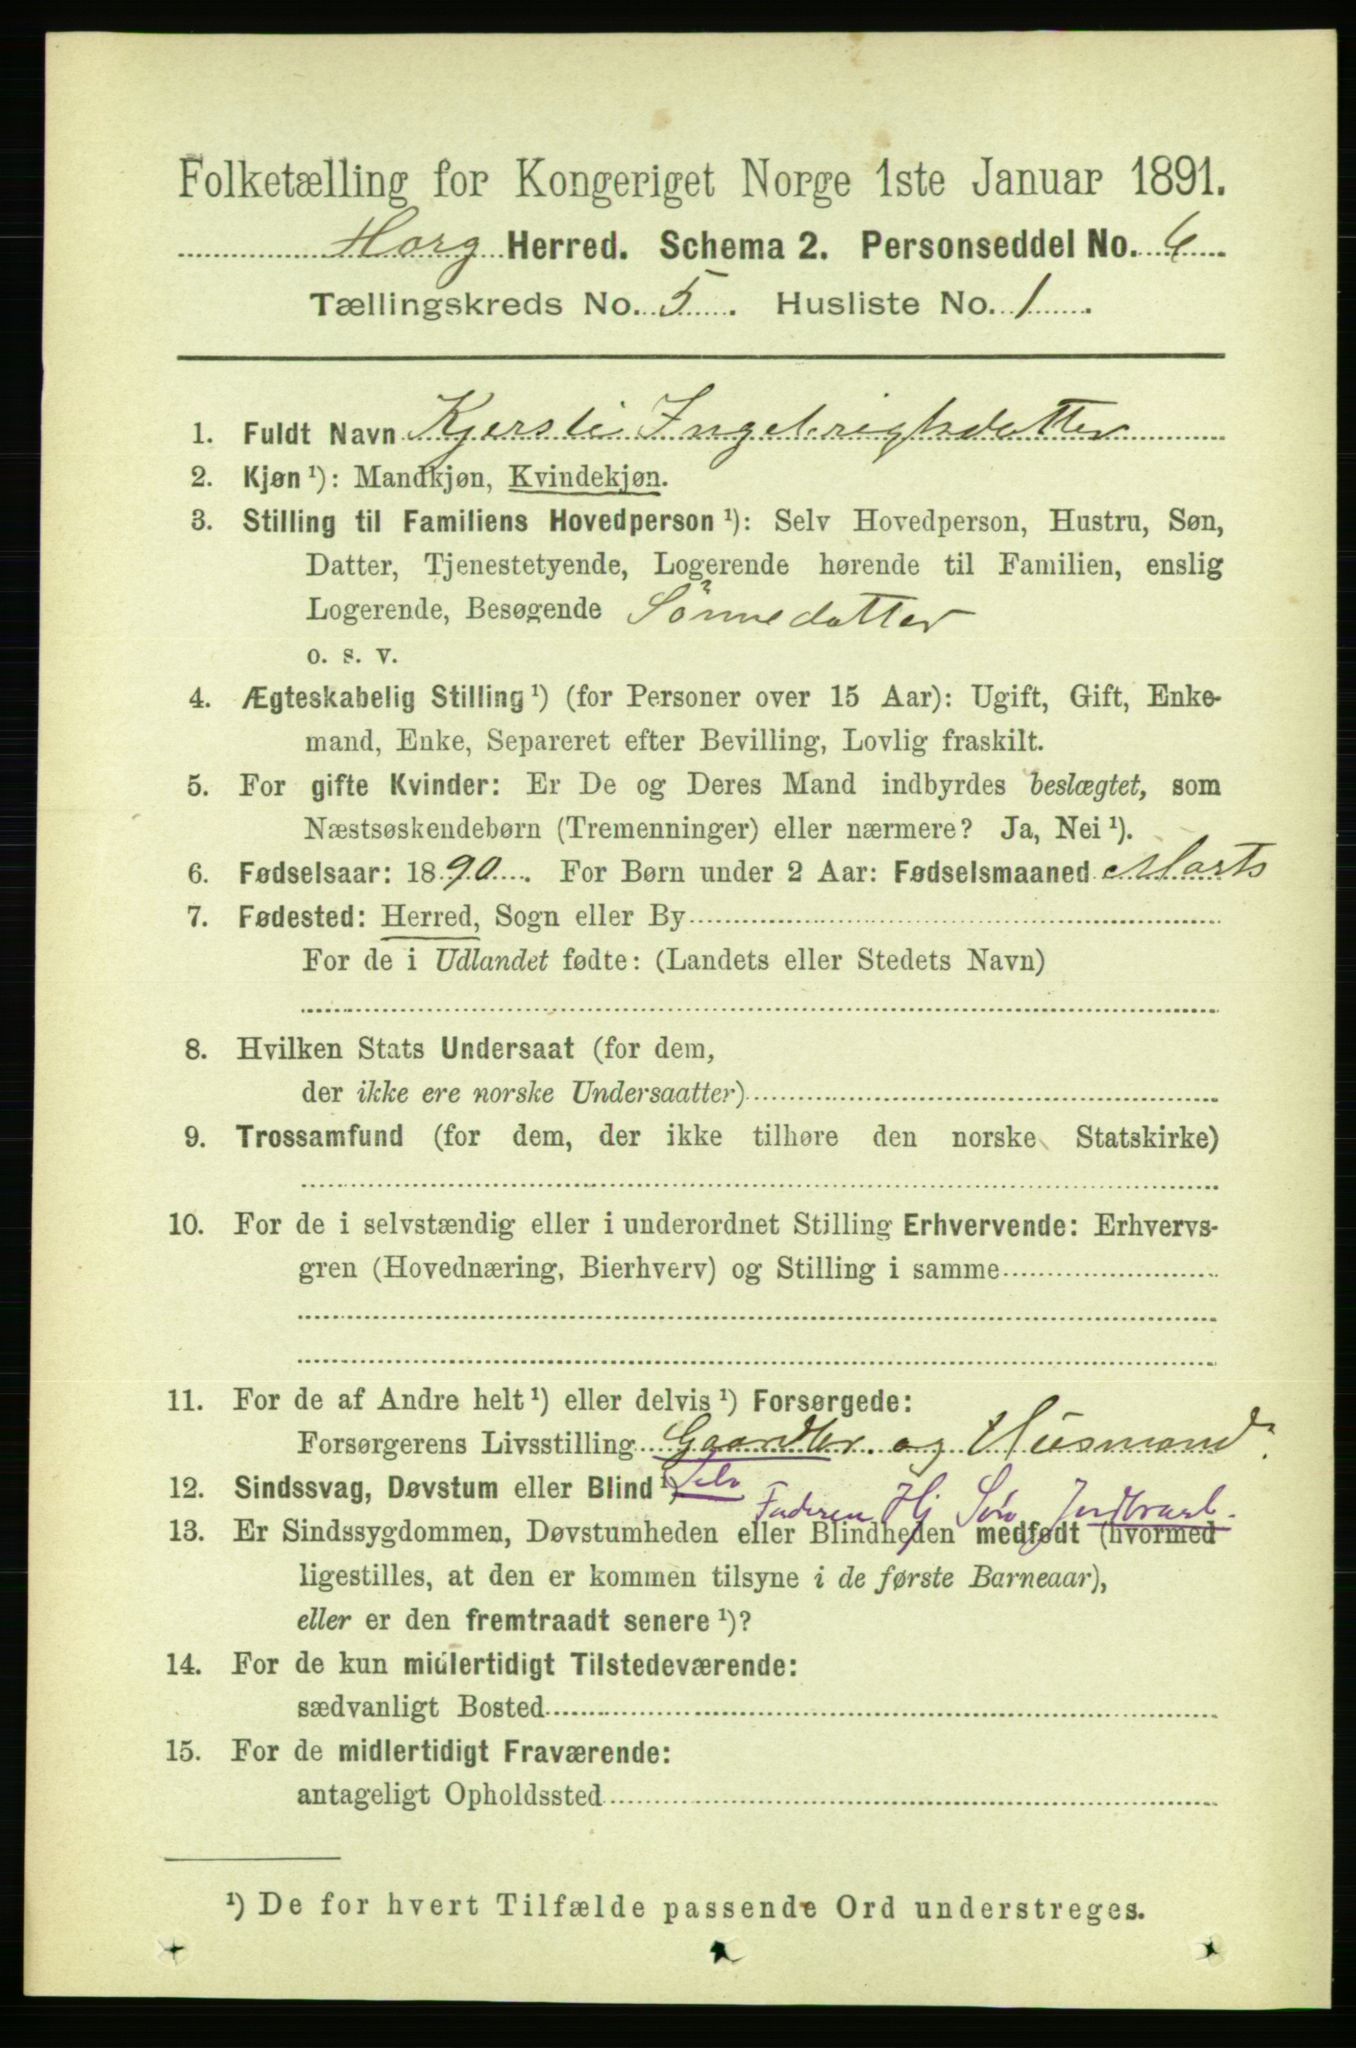 Folketælling for Kongeriget Norge 1ste Januar 1891.
Horg Herred. Schema 2. Personseddel No. 6
Tællingskreds No. 5. Husliste No. 1.
1. Fuldt Navn Kjersti Ingebrigtsdatter
2. Kjøn ¹): Mandkjøn, Kvindekjøn.
3. Stilling til Familiens Hovedperson ¹): Selv Hovedperson, Hustru, Søn,
Datter, Tjenestetyende, Logerende hørende til Familien, enslig
Logerende, Besøgende Sönnedatter
o. s. v.
4. Ægteskabelig Stilling ¹) (for Personer over 15 Aar): Ugift, Gift, Enke-
mand, Enke, Separeret efter Bevilling, Lovlig fraskilt.
5. For gifte Kvinder: Er De og Deres Mand indbyrdes beslægtet, som
Næstsøskendebørn (Tremenninger) eller nærmere? Ja, Nei ¹).
6. Fødselsaar: 1890. For Børn under 2 Aar: Fødselsmaaned Marts
7. Fødested: Herred, Sogn eller By
For de i Udlandet fødte: (Landets eller Stedets Navn)
8. Hvilken Stats Undersaat (for dem,
der ikke ere norske Undersaatter)
9. Trossamfund (for dem, der ikke tilhøre den norske Statskirke)
10. For de i selvstændig eller i underordnet Stilling Erhvervende: Erhvervs-
gren (Hovednæring, Bierhverv) og Stilling i samme
11. For de af Andre helt ¹) eller delvis ¹) Forsørgede:
Forsørgerens Livsstilling Gaardbr. og Husmand
12. Sindssvag, Døvstum eller Blind ¹) Selv
Faderen Hj Søn Jordbrug
13. Er Sindssygdommen, Døvstumheden eller Blindheden medfødt (hvormed
ligestilles, at den er kommen tilsyne i de første Barneaar),
eller er den fremtraadt senere ¹)?
14. For de kun midlertidigt Tilstedeværende:
sædvanligt Bosted
15. For de midlertidigt Fraværende:
antageligt Opholdssted
¹) De for hvert Tilfælde passende Ord understreges.